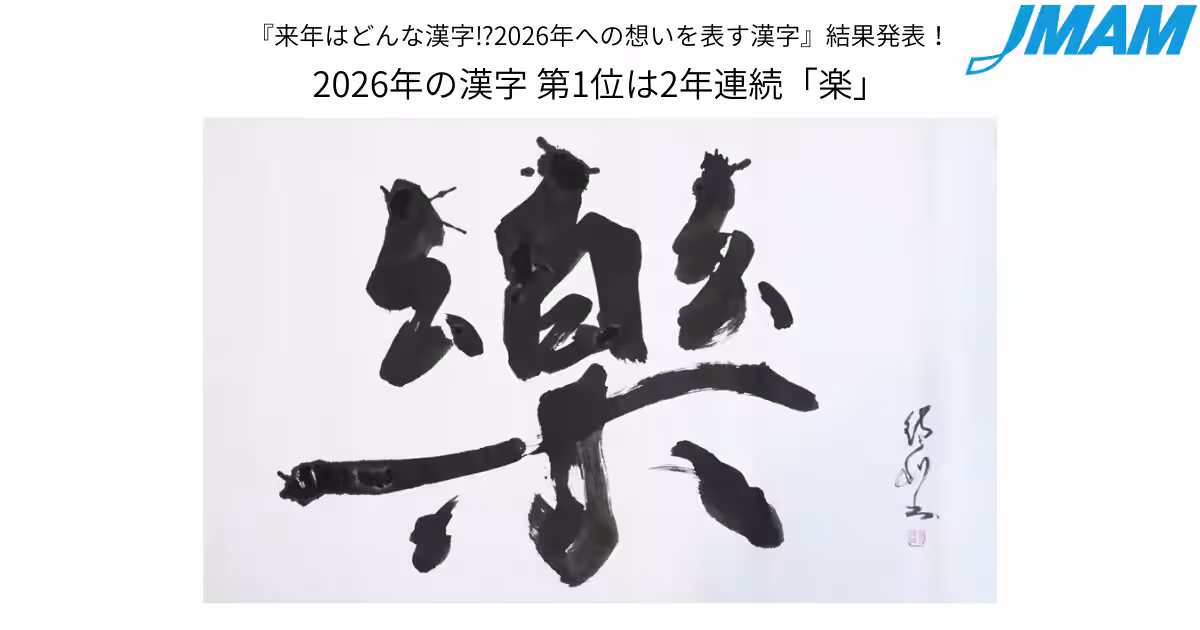 『来年はどんな漢字!?2026年への想いを表す漢字』結果発表！
JMAM
2026年の漢字 第1位は2年連続「楽」
樂